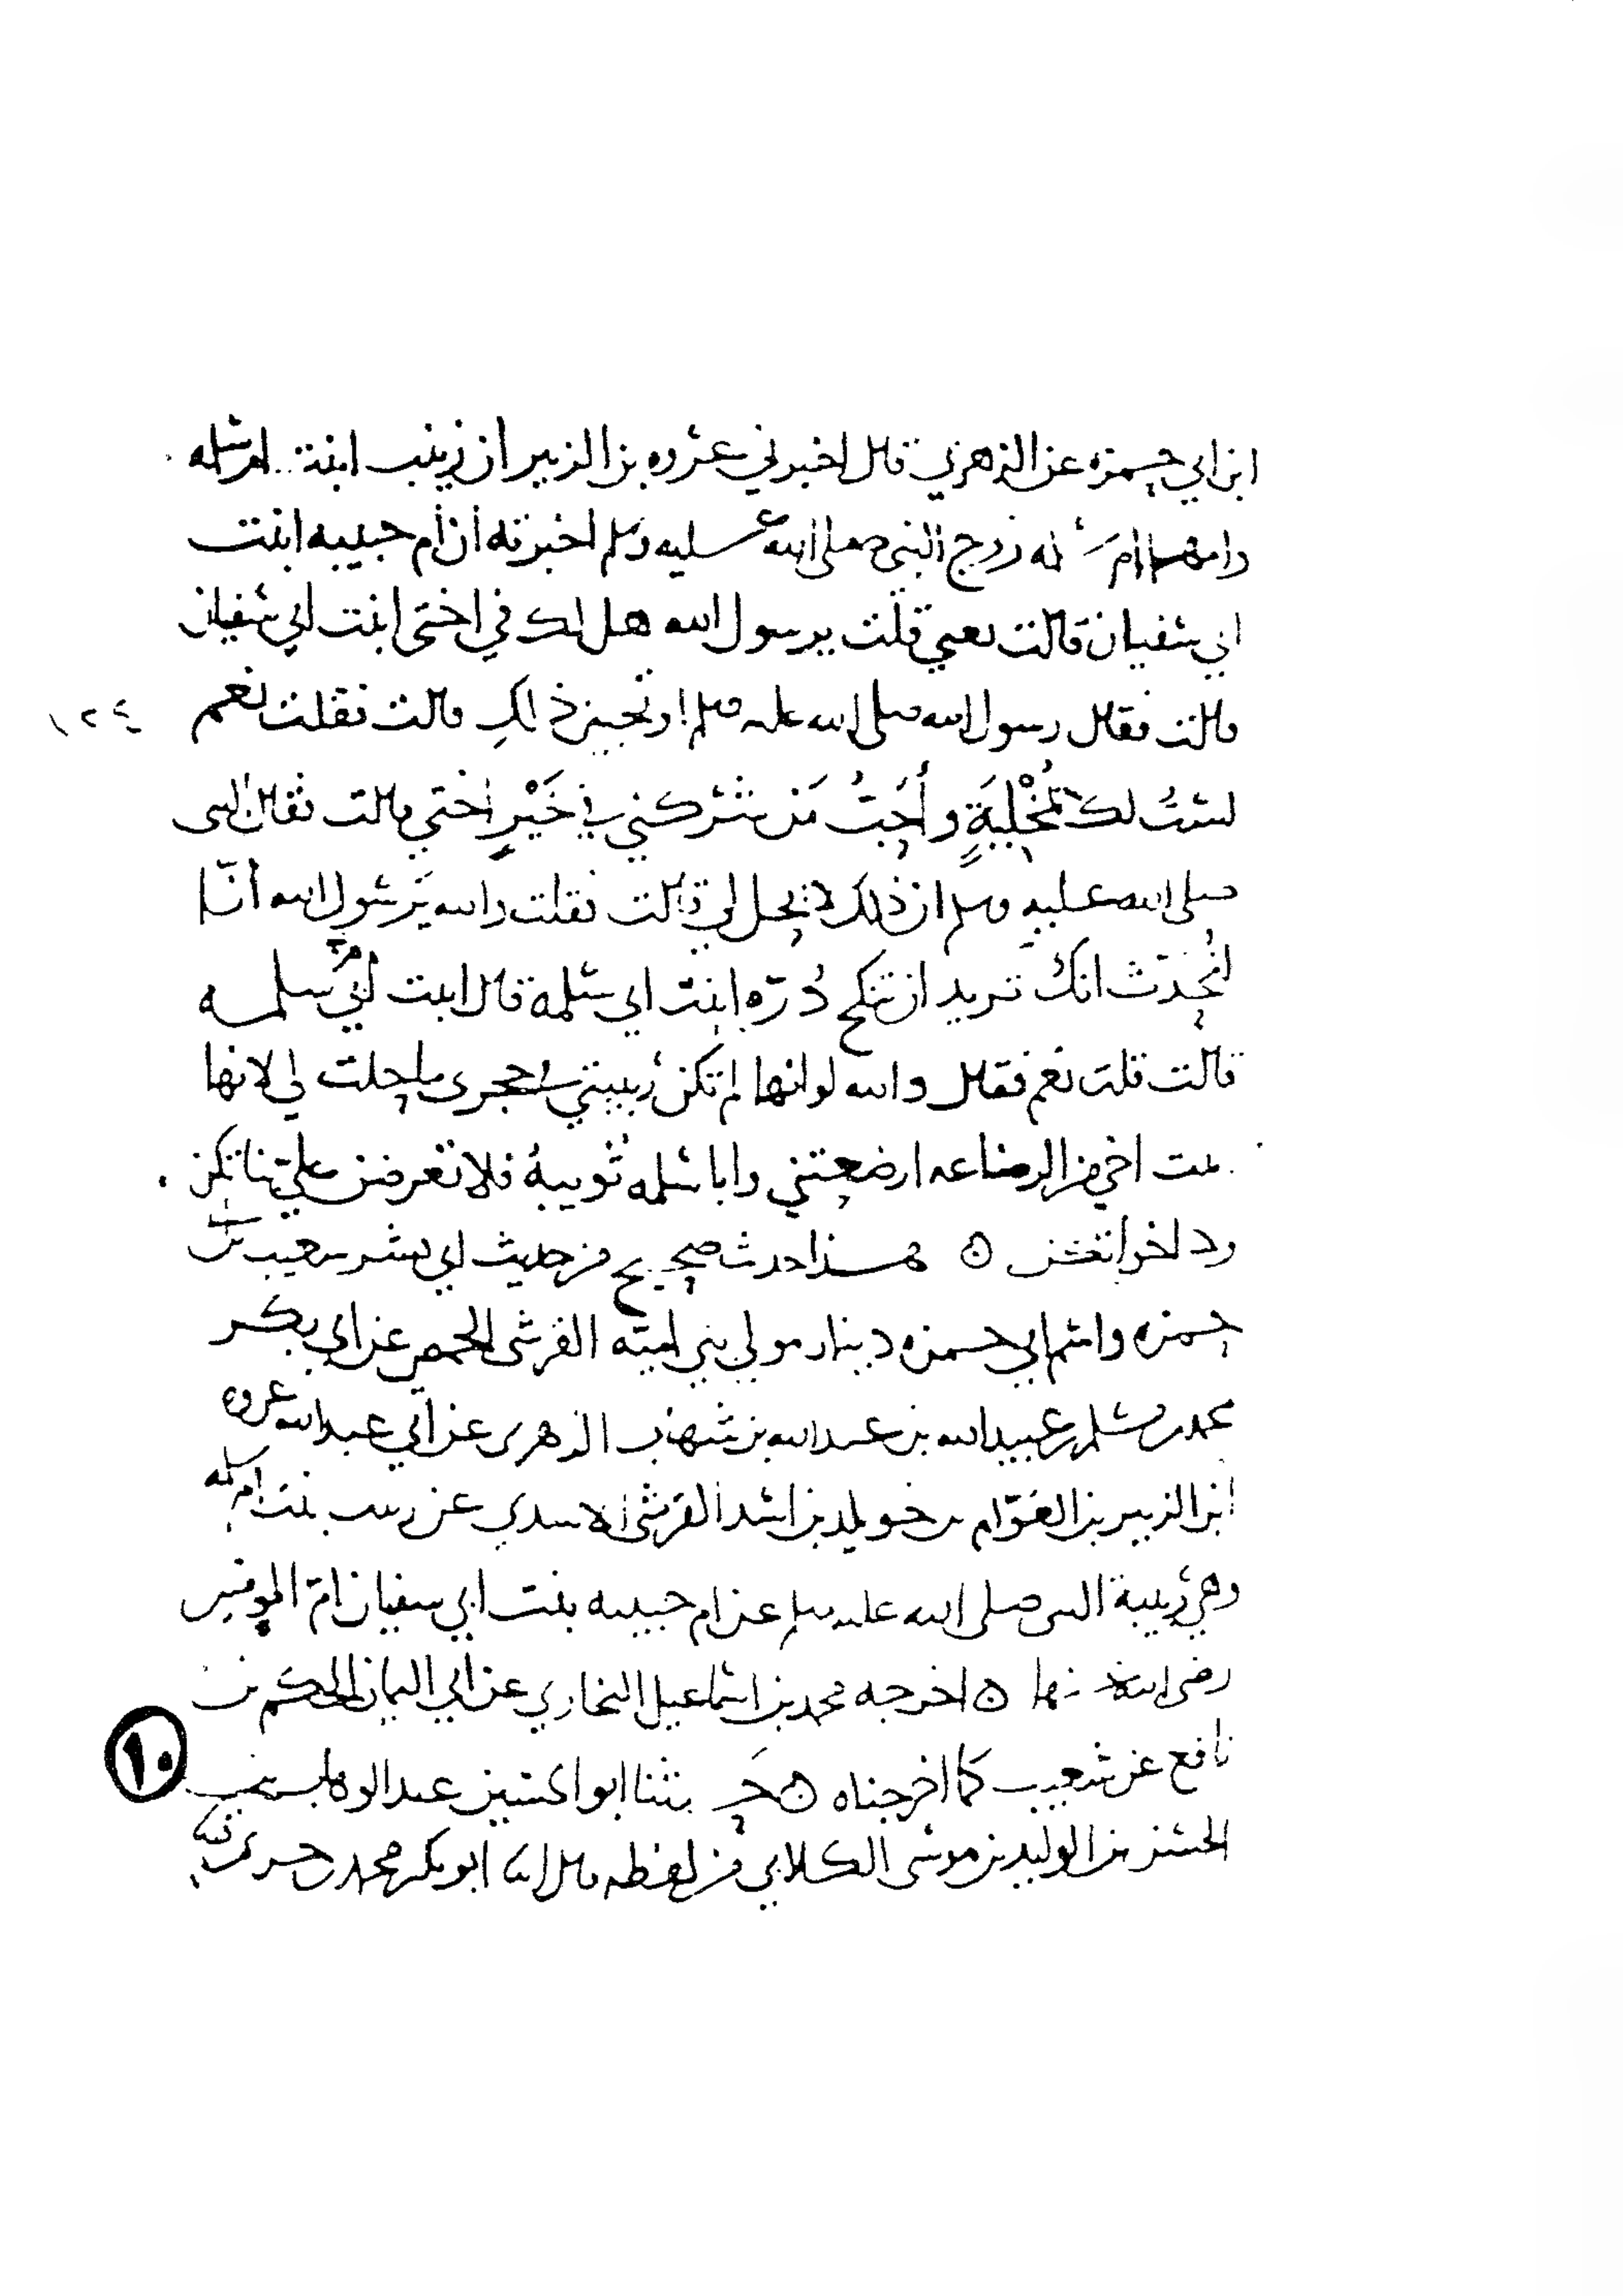 ابن ابي حمزه عن الزهري قال اخبرني عروه بن الزبير ان زينب ابنة ام سلمه
وامها ام سلمه زوج النبي صلى الله عليه وسلم اخبرته ان أم حبيبه ابنت
ابي سفيان قالت يعني قلت يرسول الله هل لك في اختى ابنت ابي سفيان
قالت فقال رسول الله صلى الله عليه وسلم اوتحبين ذلكِ قالت فقلت نعم
١٢٤
لستُ لك بمُخْلِيَةٍ وأَحَبُّ مَن شركني في خَيْرٍ اختي قالت فقال النبى
صلى الله عليه وسلم ان ذلك لا يحل لي قالت فقلت والله يَرسول الله أنّا
لنُحَدَّث انك تريد ان تنكح دُرّه ابنت ابي سلمه قال ابنت أبي سلمه
قالت قلت نعم فقال والله لو انها لم تكن ربيبتي في حجرى ما حلت لي لانها
بنت اخي من الرضاعه ارضعتني وابا سلمه ثُويبةُ فلا تعرضن علي بناتكن
ولا اخواتكن ه هذا حديث صحيح من حديث ابي بشر شعيب بن
حمزه واسم ابي حمزه دينار مولي بني اميّه القرشى الحمصى عن ابي بكر
محمد بن مسلم بن عبيد الله بن عبد الله بن شهاب الزهرى عن أبي عبد الله عروه
ابن الزبير بن العَوّام بن خويلد بن اسد القرشى الاسدي عن زينب بنت ام سلمه
وهي ربيبة النبى صلى الله عليه وسلم عن ام حبيبه بنت ابي سفيان امّ المومنين
رضى الله عنها ه اخرجه محمد بن اسماعيل البخاري عن ابي اليمان الحكم بن
نافع عن شعيب كما اخرجناه ه حدثنا ابو الحسين عبد الوهاب بن
١٠
الحسن بن الوليد بن موسى الكلابي من لفظه قال انا ابو بكر محمد بن خريم